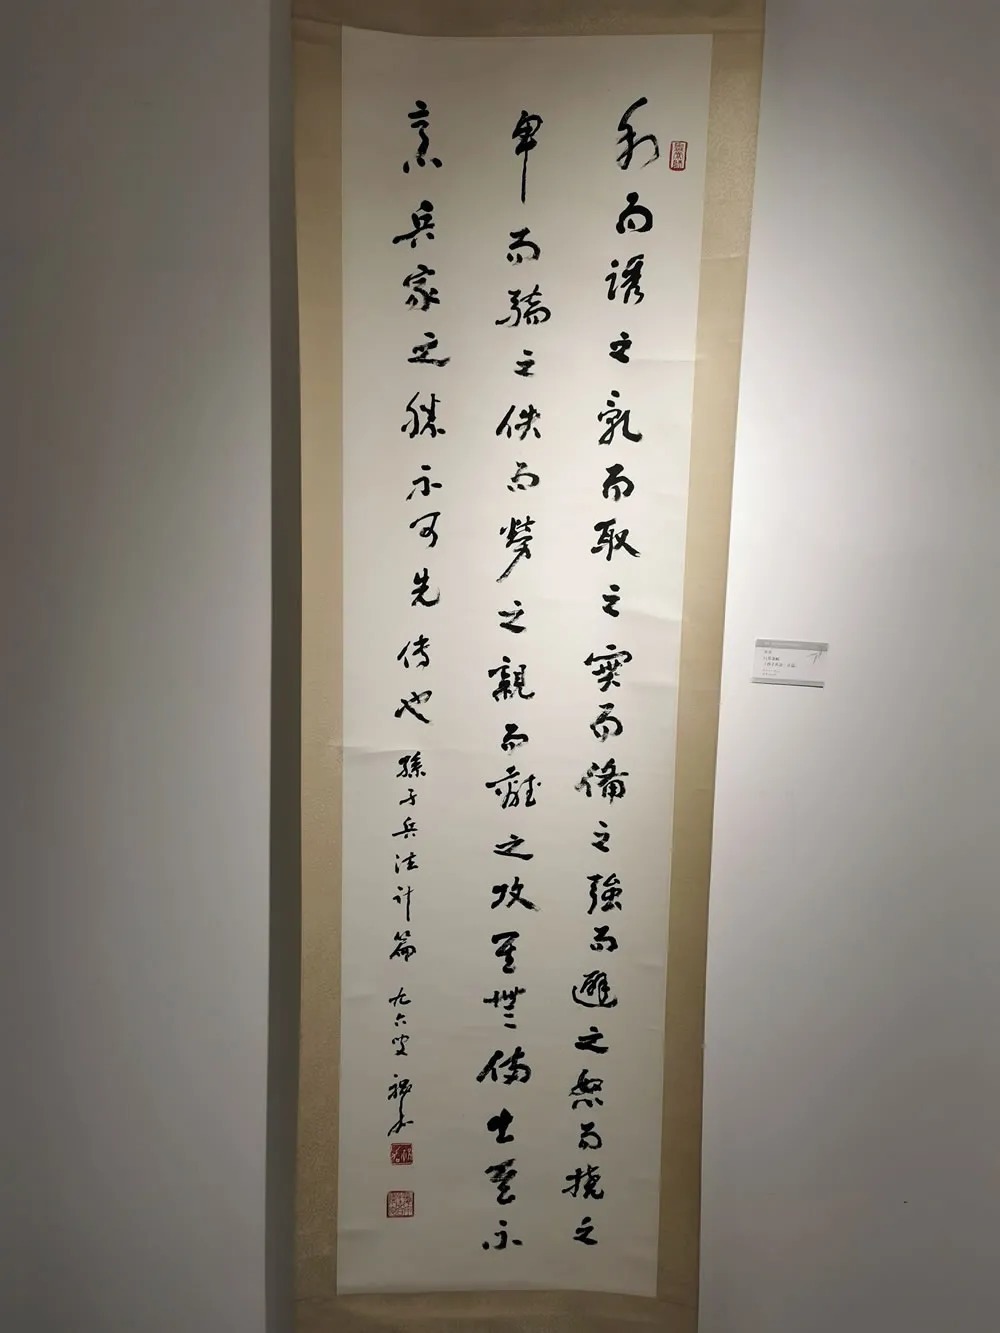 利而誘之亂而取之實而備之強而避之怒而撓之
卑而驕之佚而勞之親而離之攻其無備出其不
意兵家之勝不可先傳也 孫子兵法計篇 九六叟